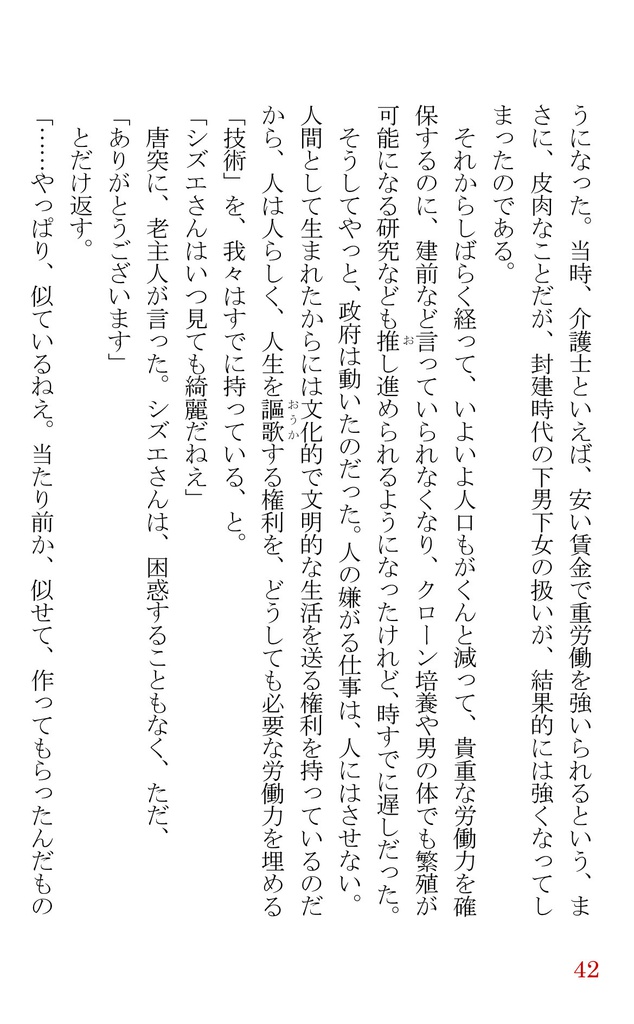 うになった。当時、介護士といえば、安い賃金で重労働を強いられるという、ま
さに、皮肉なことだが、封建時代の下男下女の扱いが、結果的には強くなってし
まったのである。
それからしばらく経って、いよいよ人口もがくんと減って、貴重な労働力を確
保するのに、建前など言っていられなくなり、クローン培養や男の体でも繁殖が
可能になる研究なども推し進められるようになったけれど、時すでに遅しだった。
お
そうしてやっと、政府は動いたのだった。人の嫌がる仕事は、人にはさせない。
人間として生まれたからには文化的で文明的な生活を送る権利を持っているのだ
から、人は人らしく、人生を謳歌する権利を、どうしても必要な労働力を埋める
おうか
「技術」を、我々はすでに持っている、と。
「シズエさんはいつ見ても綺麗だねえ」
唐突に、老主人が言った。シズエさんは、困惑することもなく、ただ、
「ありがとうございます」
とだけ返す。
「……やっぱり、似ているねえ。当たり前か、似せて、作ってもらったんだもの
42